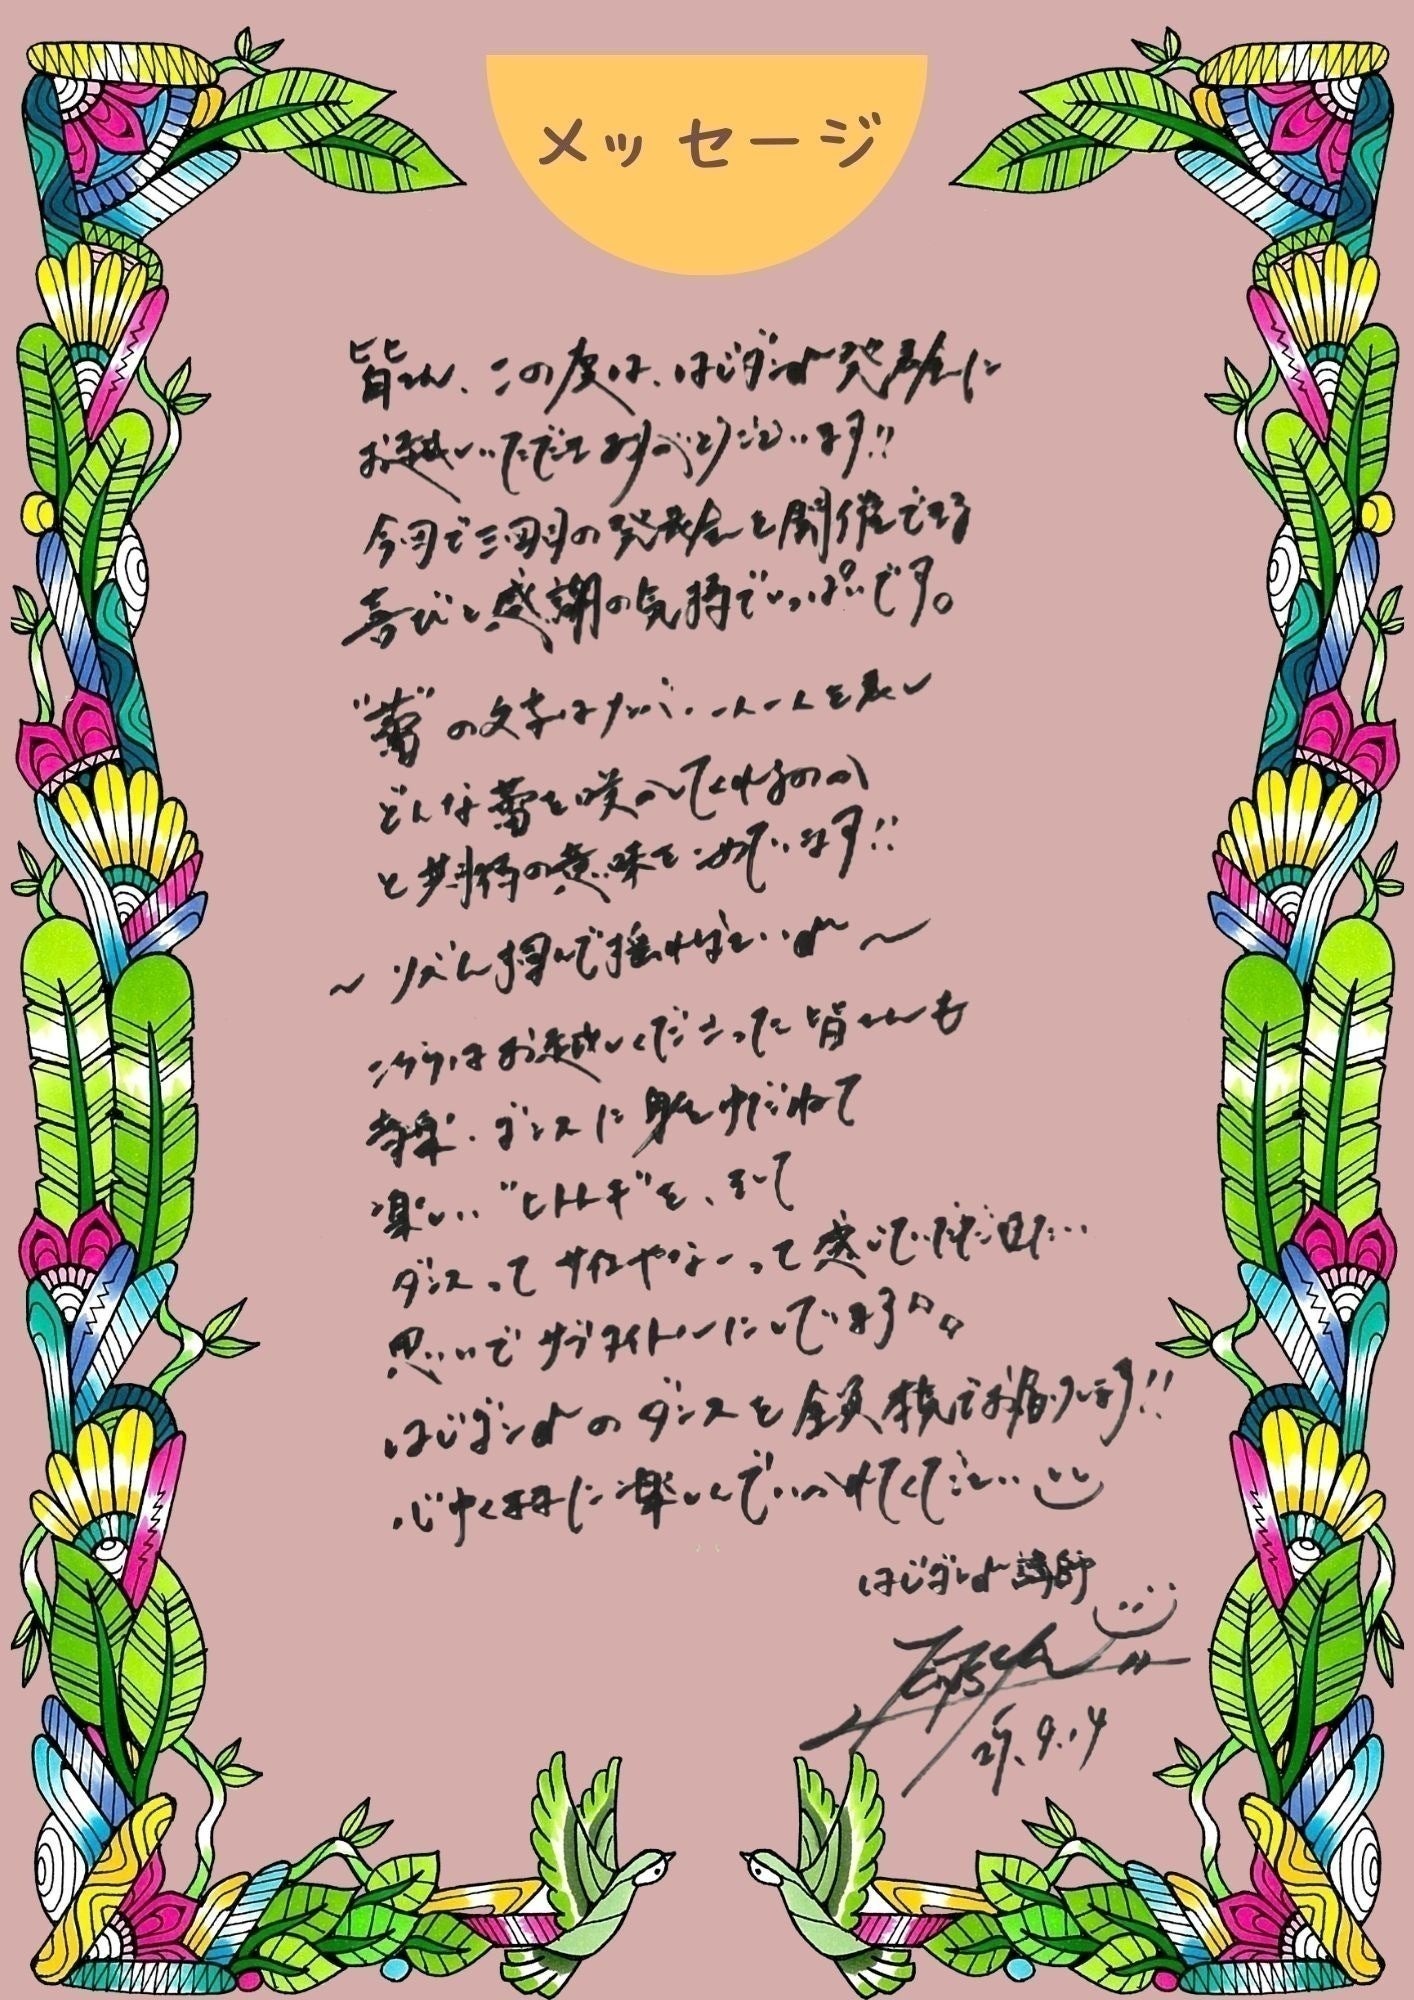 メッセージ
皆さん、この度は、はじダン♪発表会に
お越しいただきありがとうございます!!
今回で三回目の発表会を開催できる
喜びと感謝の気持でいっぱいです。
"蕾"の文字はメンバー一人一人を表し
どんな蕾を咲かしてくれるのか
と期待の意味をこめています!!
～リズム掴んで揺ればいい♪～
こちらはお越しくださった皆さんも
音楽・ダンスに身をゆだねて
楽しい"ヒトトキ"を、そして
ダンスってサイコやなーって感じていただきたい…
思いでサブタイトルにしています
はじダン♪のダンスを全員本気でお届けします!!
心ゆくまでに楽しんでいかれてください
はじダン♪講師
9.14